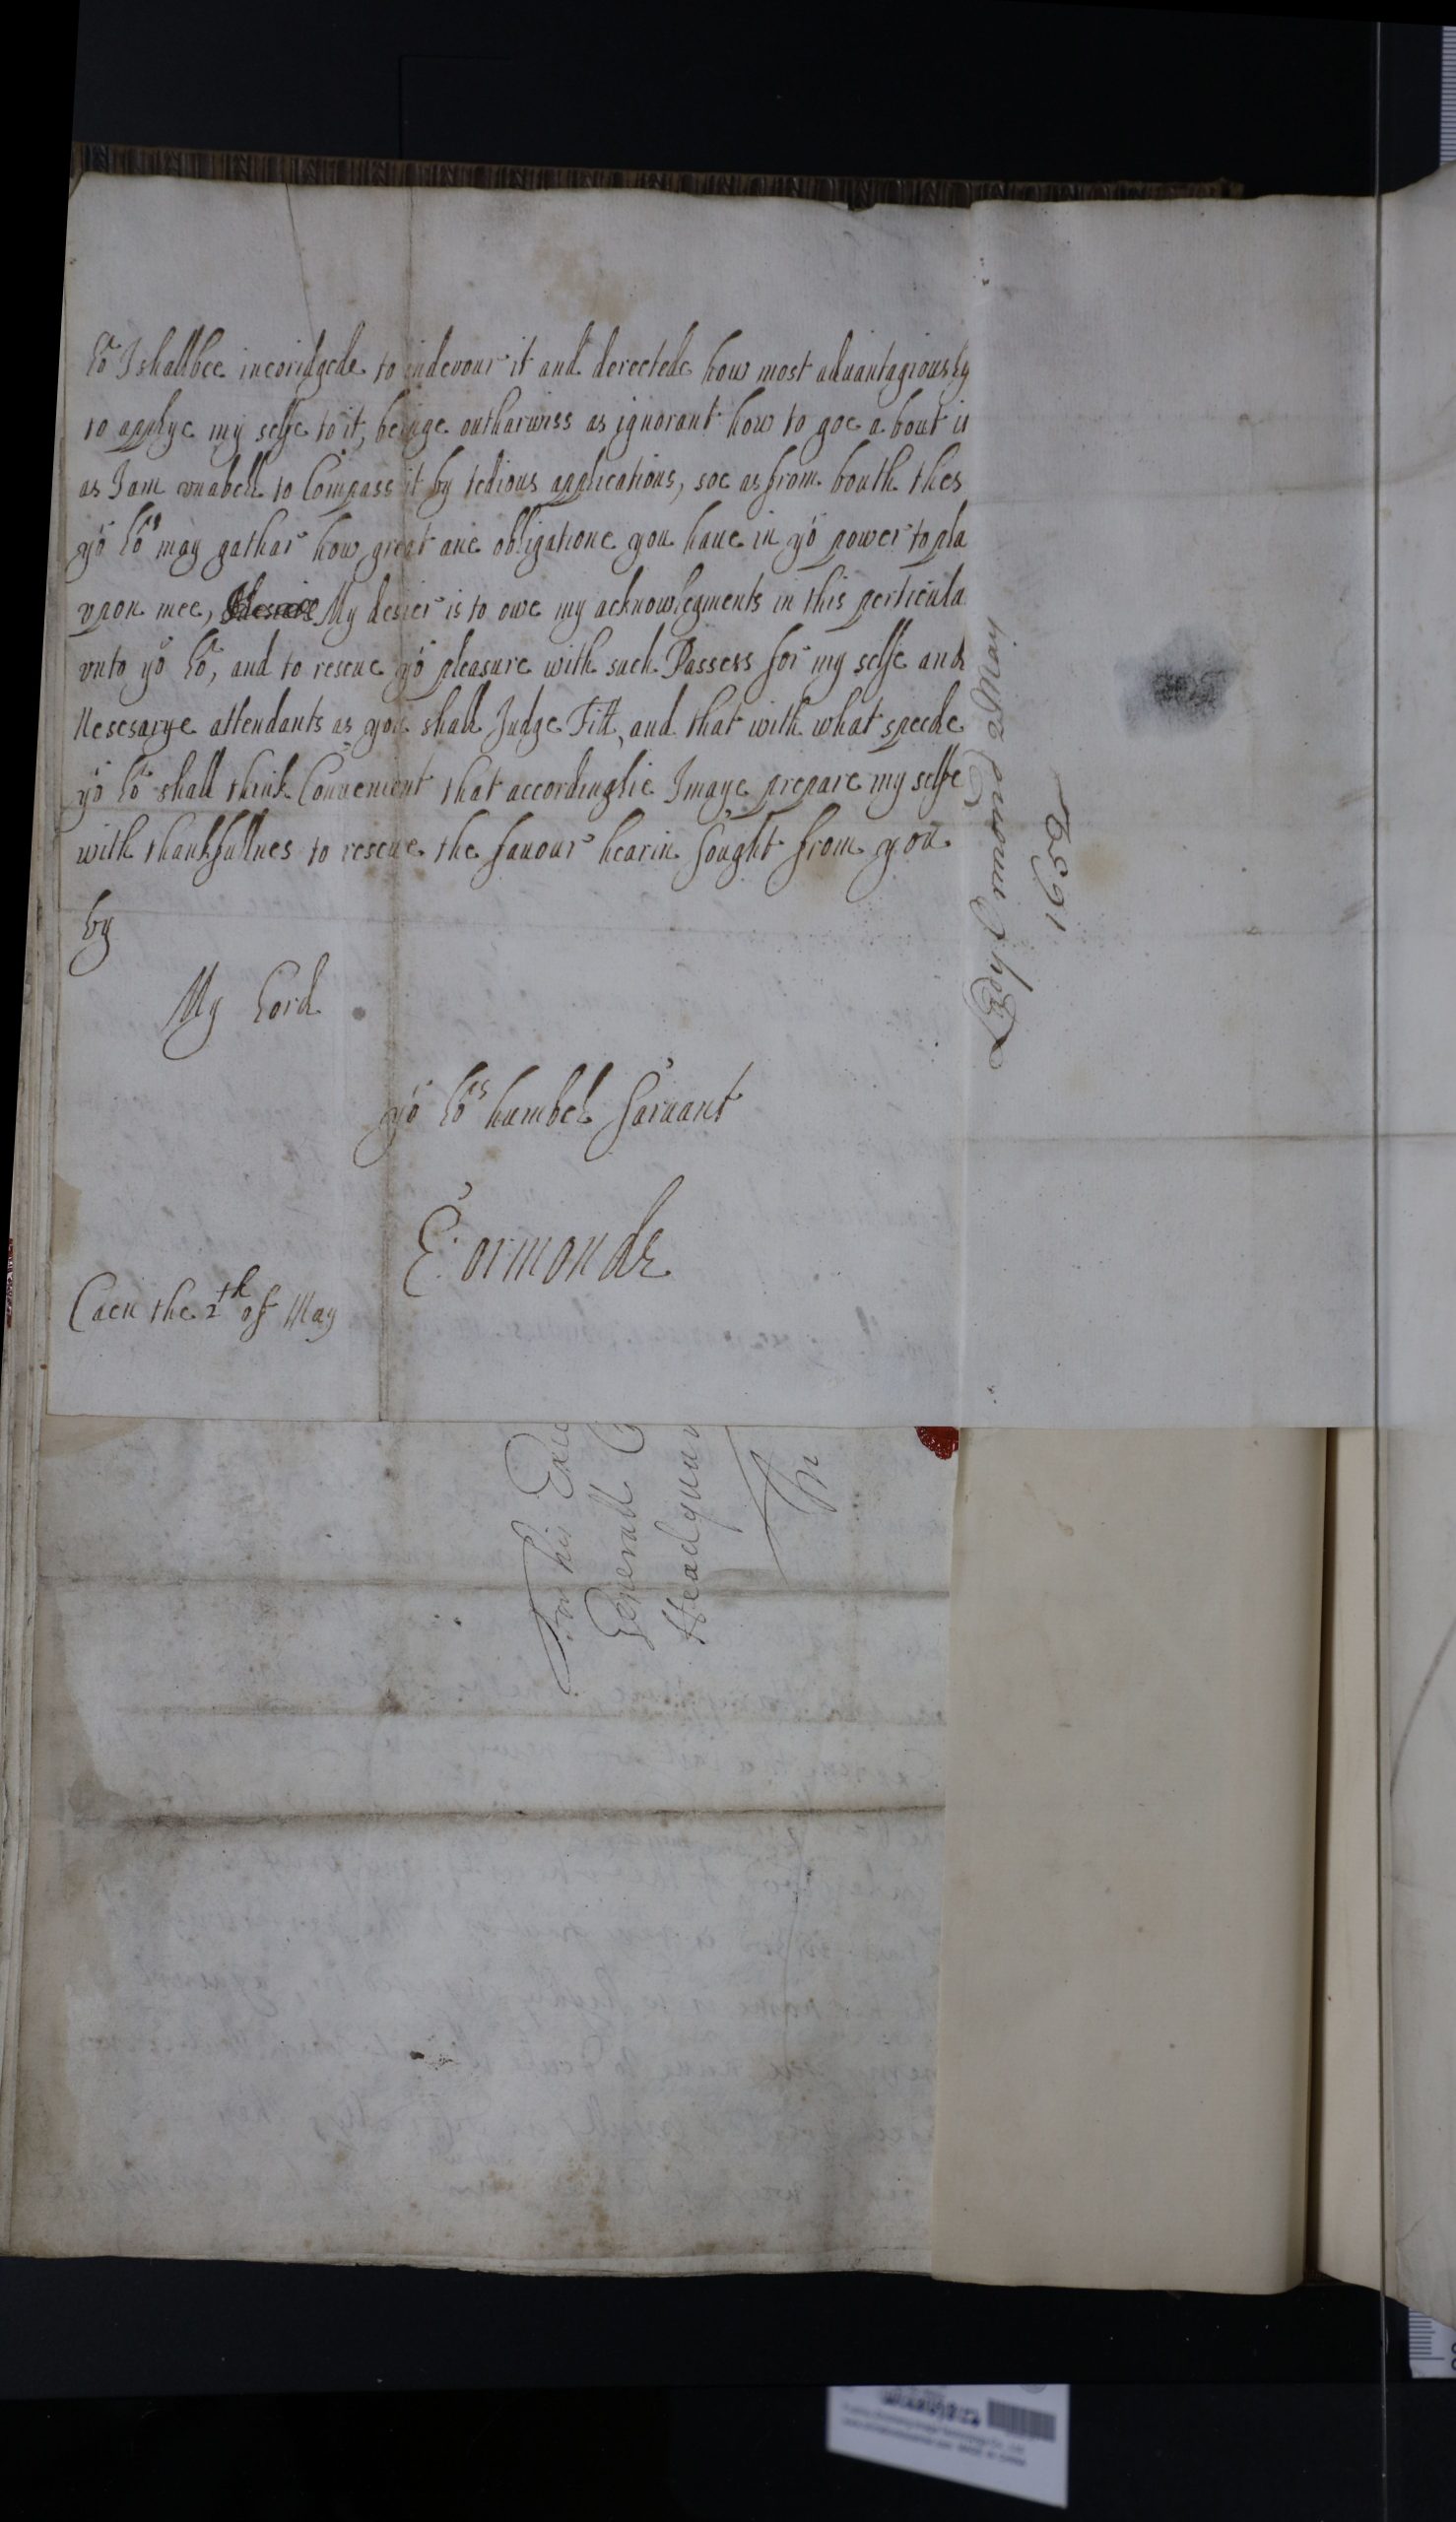 Lo: I shallbee incoridgede to indevour it and derectede how most aduantagiously
to applye my selfe to it, beinge outharwiss as ignorant how to goe a bout it
as I am vnabell to Compass it by tedious applications, soe as from bouth thes
yo: Lo:s may gathar how great ane obligatione you haue in yo: power to pla
vpon mee, My desier is to owe my acknowlegments in this perticula
vnto yo: Lo:, and to reseue yo: pleasure with such Passess for my selfe and
Nesesarye attendants as you shall Judge Fitt, and that with what speede
yo: Lo: shall think Conuenient that accordinglie I maye prepare my selfe
with thankfullnes to reseue the fauour hearin sought from you
by
My Lord
yo: Lo:s humbel saruant
E: ormonde
Caen the 2th of May
Lady ormond
1652
For his Exce
Generall C
Headquar